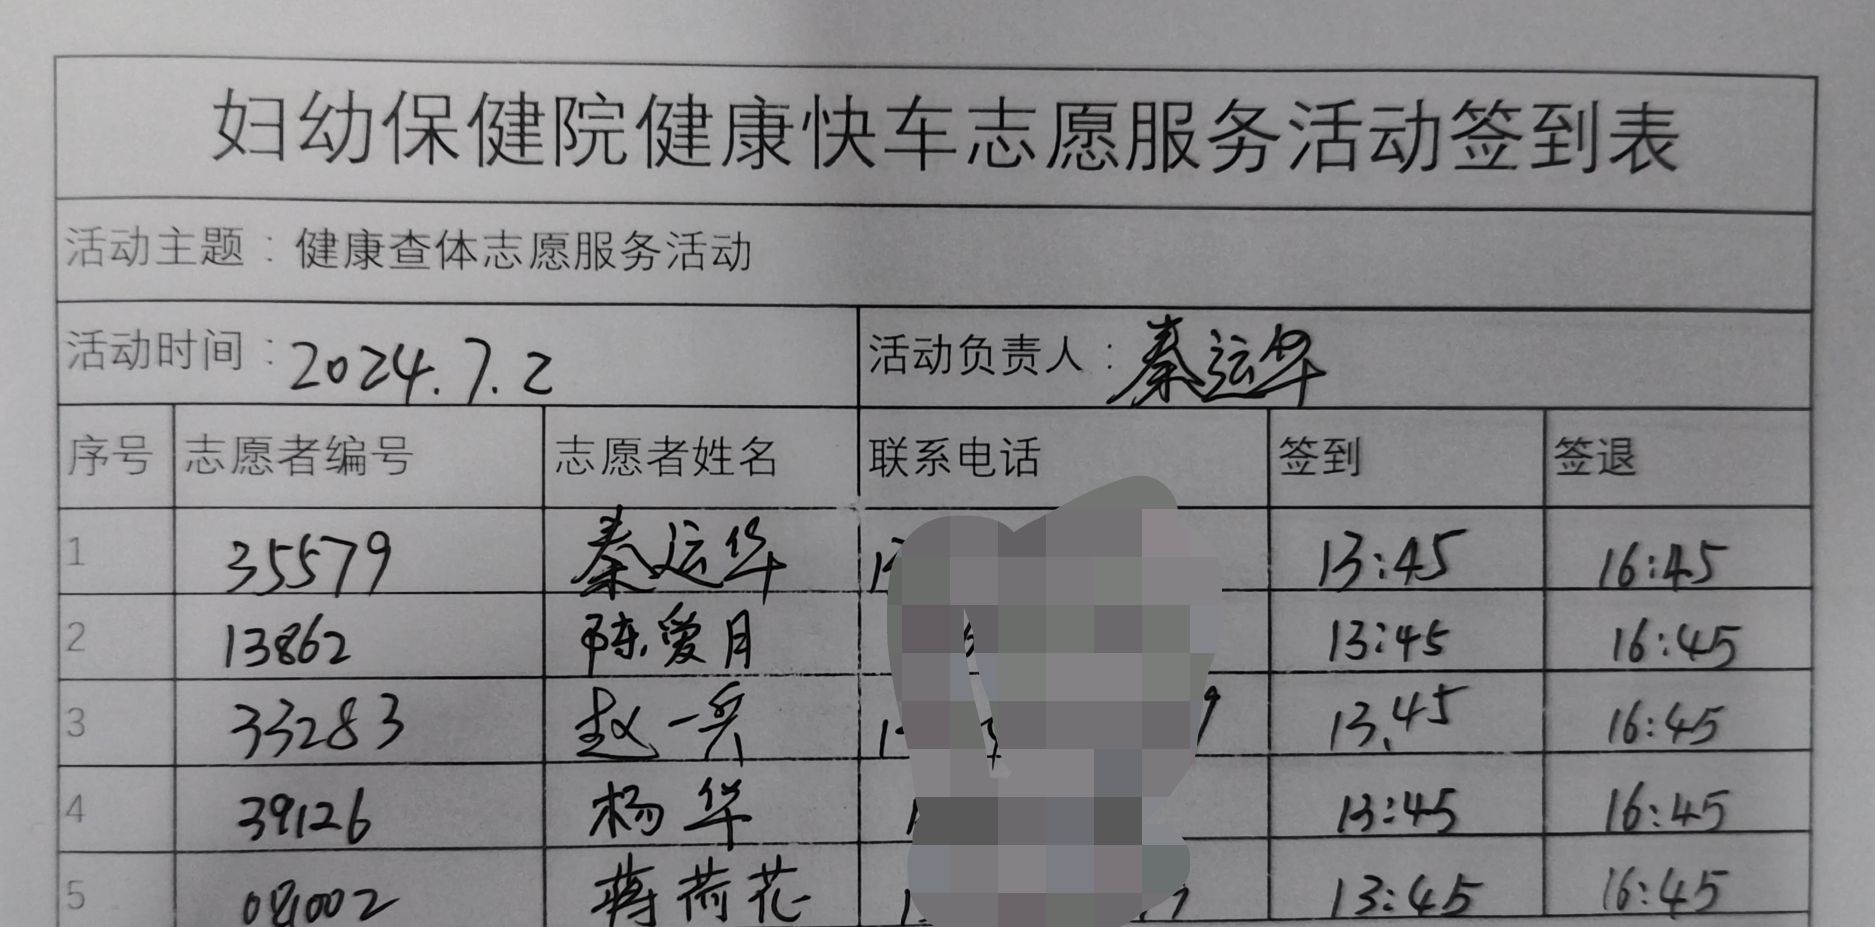 妇幼保健院健康快车志愿服务活动签到表
活动主题：健康查体志愿服务活动
活动时间：2024.7.2 活动负责人：秦运华
序号 志愿者编号 志愿者姓名 联系电话 签到 签退
1 35579 秦运华 13:45 16:45
2 13862 陈爱月 13:45 16:45
3 33283 赵一兵 13.45 16:45
4 39126 杨华 13:45 16:45
5 蒋荷花 13:45 16:45